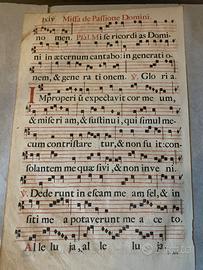 lxiv Missa de Passione Domini.
no men. Psal. Mi se ricordi as Domi-
ni in æternum cantabo: in generati o-
nem, & gene ra ti onem. ℣. Glo ri a.
Improperi ũ expectavit cor me um,
& mise ri am, & sustinu i, qui simul me-
cum contristare tur, & non fu it: con-
solantem me quæ sivi, & non inve ni.
℣. Dede runt in escam me am fel, & in
siti me a potaverunt me a ce to.
Al le lu ja, al le lu ja.